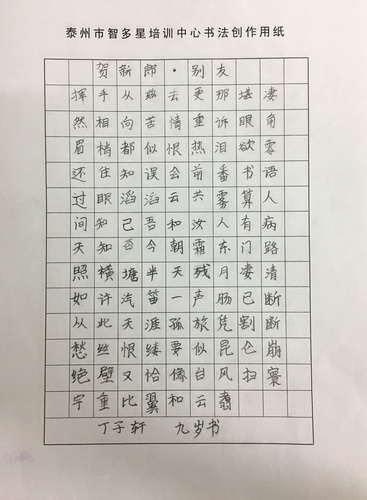 泰州市智多星培训中心书法创作用纸
贺新郎·别友
挥手从兹去更那堪凄
然相向苦情重诉眼角
眉梢都似恨热泪欲零
还住知误会前番书语
过眼滔滔云共雾算人
间知己吾和汝人有病
天知否今朝霜东门路
照横塘半天残月凄清
如许汽笛一声肠已断
从此天涯孤旅凭割断
愁丝恨缕要似昆仑崩
绝壁又恰像台风扫寰
宇重比翼和云翥
丁子轩 九岁书